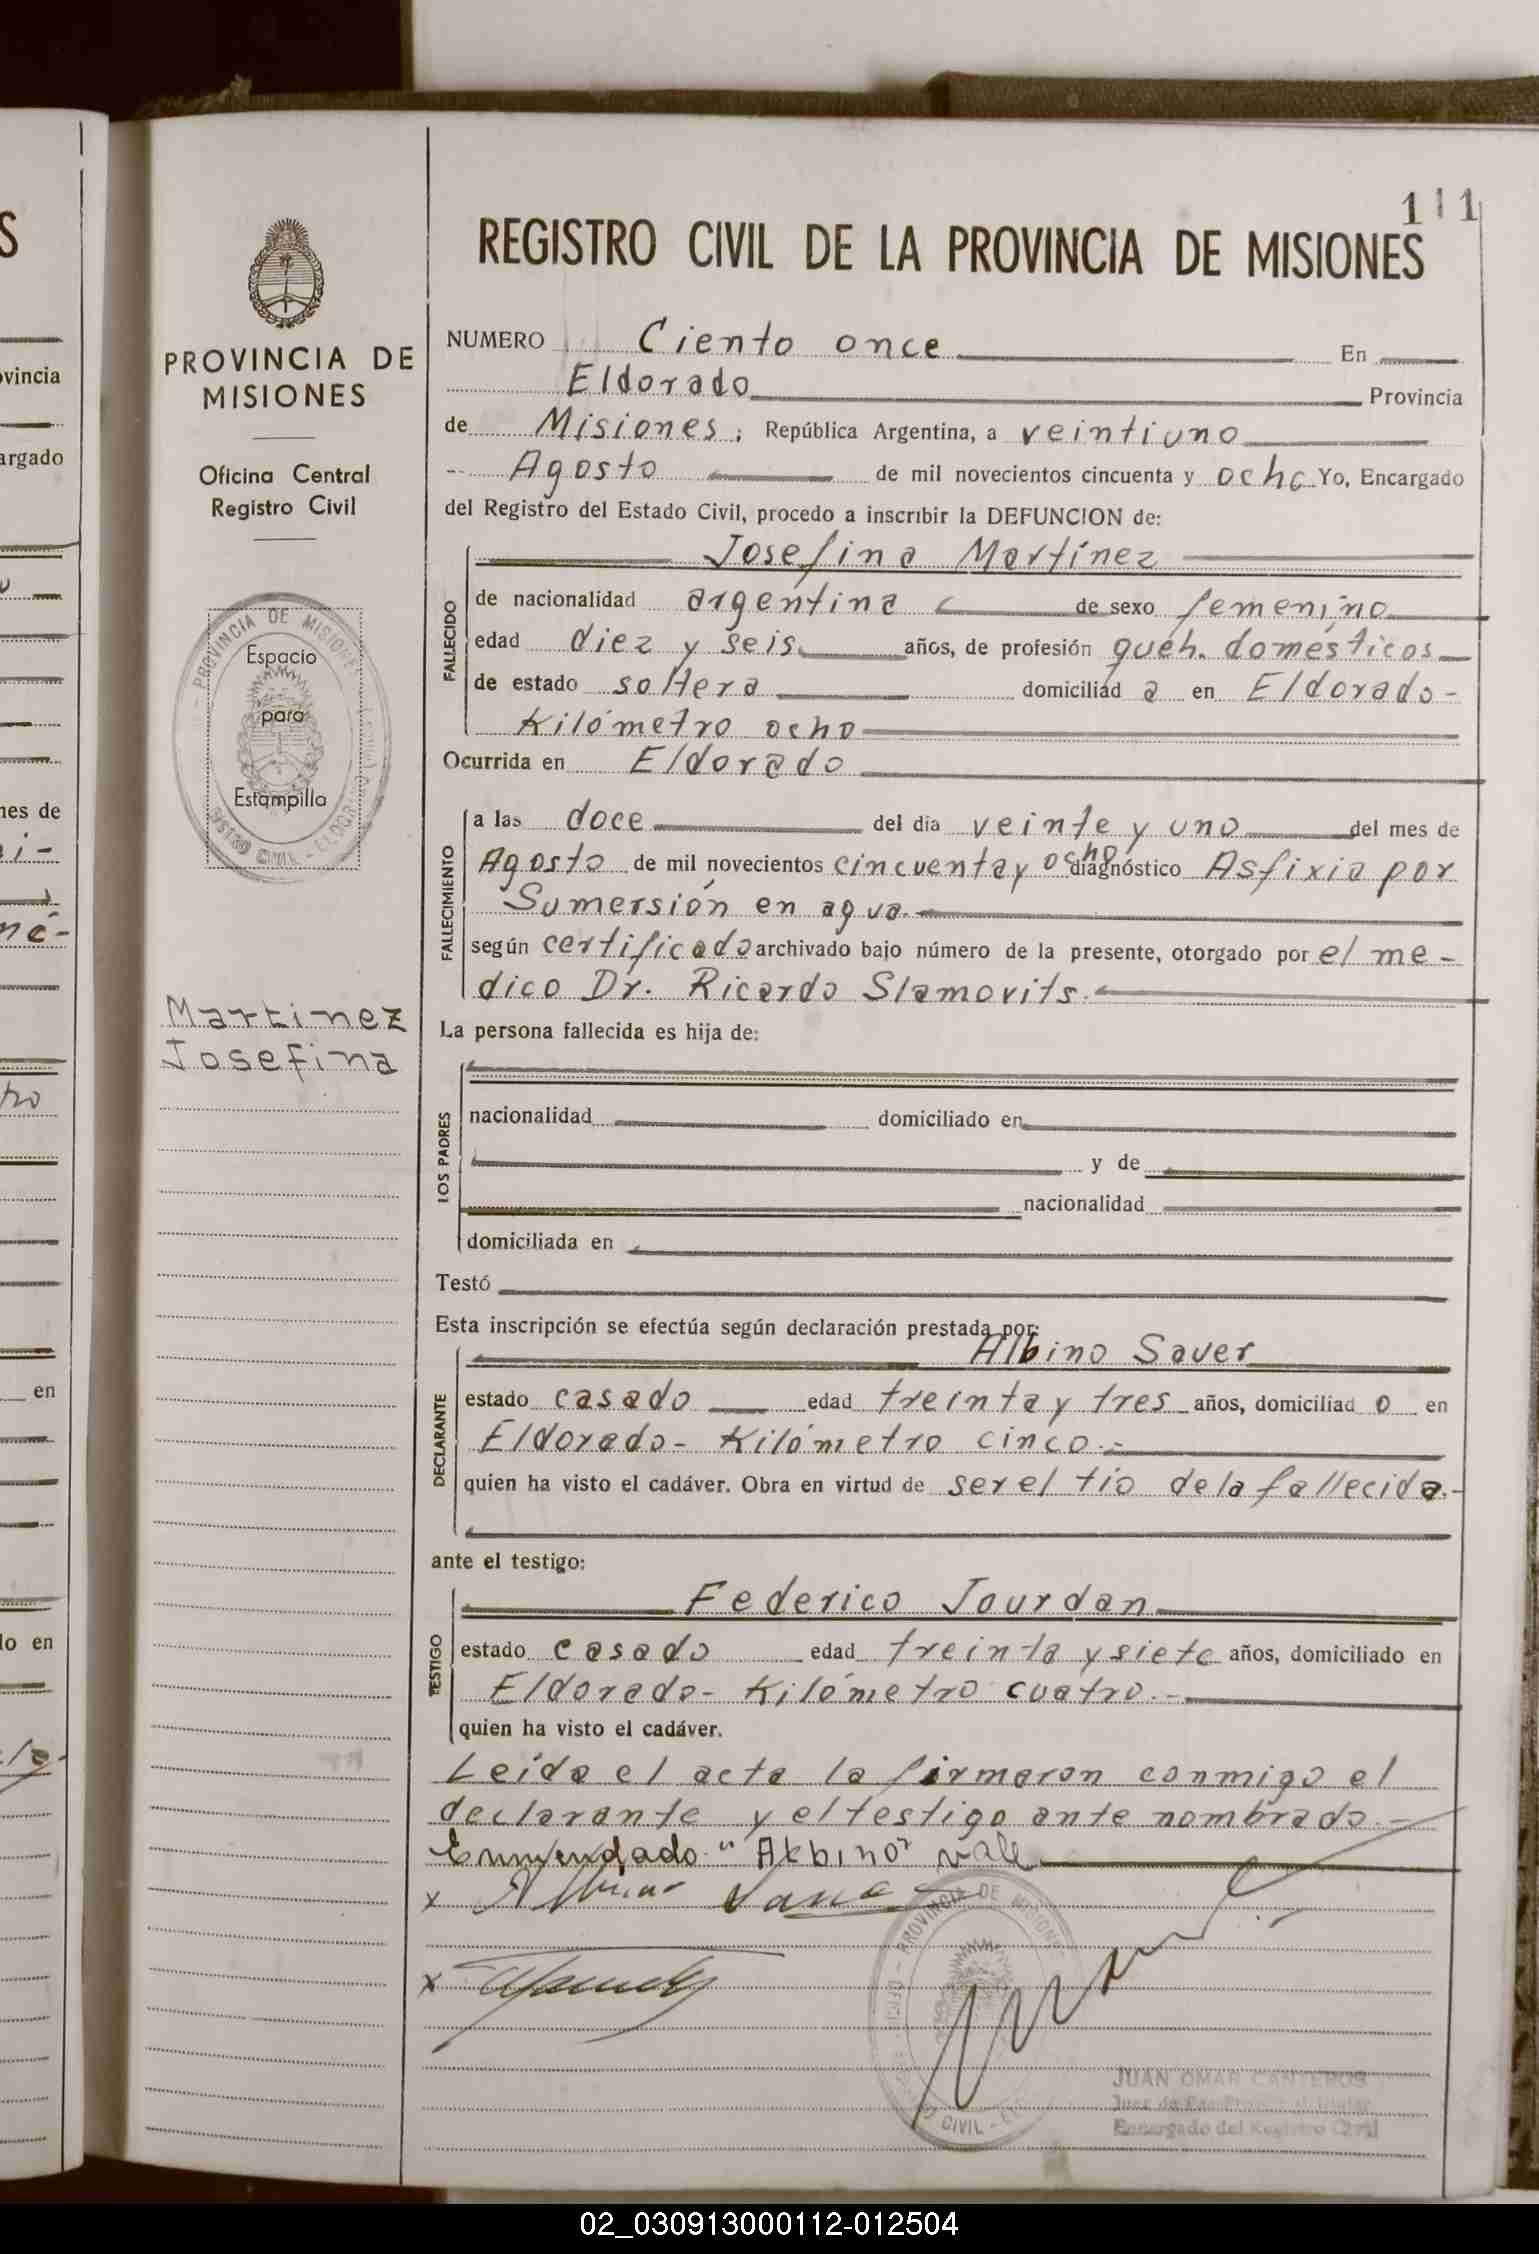 111
REGISTRO CIVIL DE LA PROVINCIA DE MISIONES
PROVINCIA DE
MISIONES
Oficina Central
Registro Civil
PROVINCIA DE MISIONES
Espacio
para
Estampilla
Martinez
Josefina
NUMERO Ciento once En
Eldorado Provincia
de Misiones; República Argentina, a veintiuno
Agosto de mil novecientos cincuenta y ocho Yo, Encargado
del Registro del Estado Civil, procedo a inscribir la DEFUNCION de:
Josefina Martínez
FALLECIDO
de nacionalidad argentina de sexo femenino
edad diez y seis años, de profesión queh. domésticos
de estado soltera domiciliad a en Eldorado-
Kilómetro ocho
Ocurrida en Eldorado
FALLECIMIENTO
a las doce del día veinte y uno del mes de
Agosto de mil novecientos cincuenta y ocho diagnóstico Asfixia por
Sumersión en agua.
según certificado archivado bajo número de la presente, otorgado por el me-
dico Dr. Ricardo Slamovits.
La persona fallecida es hija de:
LOS PADRES
nacionalidad domiciliado en
y de
nacionalidad
domiciliada en
Testó
Esta inscripción se efectúa según declaración prestada por:
Albino Sauer
DECLARANTE
estado casado edad treinta y tres años, domiciliad o en
Eldorado- Kilómetro cinco.-
quien ha visto el cadáver. Obra en virtud de ser el tío de la fallecida.-
ante el testigo:
Federico Jourdan
TESTIGO
estado casado edad treinta y siete años, domiciliado en
Eldorado- Kilómetro cuatro.-
quien ha visto el cadáver.
Leída el acta la firmaron conmigo el
declarante y el testigo ante nombrado.-
Enmendado "Albino" vale
x Albino
x
PROVINCIA DE MISIONES
CIVIL
JUAN OMAR CANTEROS
Encargado del Registro Civil
vincia
argado
nes de
en
lo en
02_030913000112-012504